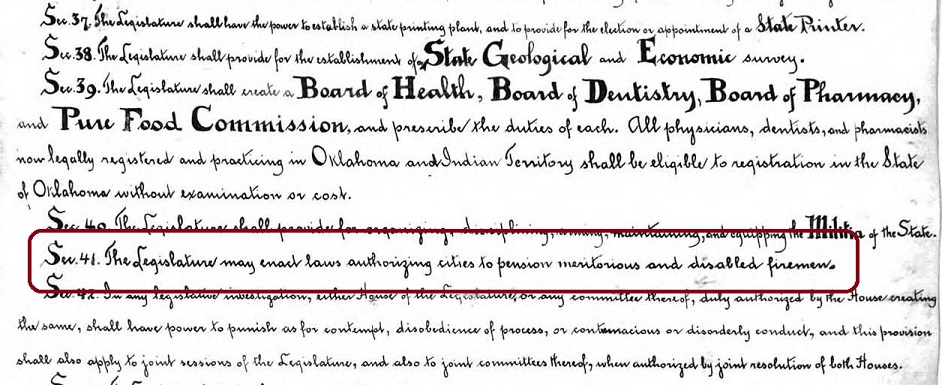 Sec. 37. The Legislature shall have the power to establish a state printing plant, and to provide for the election or appointment of a State Printer.
Sec. 38. The Legislature shall provide for the establishment of a State Geological and Economic survey.
Sec. 39. The Legislature shall create a Board of Health, Board of Dentistry, Board of Pharmacy,
and Pure Food Commission, and prescribe the duties of each. All physicians, dentists, and pharmacists
now legally registered and practicing in Oklahoma and Indian Territory shall be eligible to registration in the State
of Oklahoma without examination or cost.
Sec. 40. The Legislature shall provide for organizing, disciplining, arming, maintaining, and equipping the Militia of the State.
Sec. 41. The Legislature may enact laws authorizing cities to pension meritorious and disabled firemen.
Sec. 42. In any legislative investigation, either House of the Legislature, or any committee thereof, duly authorized by the House creating
the same, shall have power to punish as for contempt, disobedience of process, or contumacious or disorderly conduct, and this provision
shall also apply to joint sessions of the Legislature, and also to joint committees thereof, when authorized by joint resolution of both Houses.